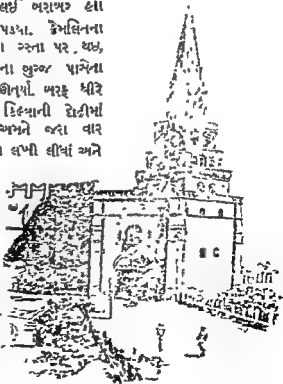 લઈ બરાબર હતા
પડ્યા. ક્રેમલિનના
રસ્તા પર થઇ,
ના બુરજ પાસેના
ઊતર્યા. બરફ ધીરે
કિલ્લાની દોઢીમાં
અમને જરા વાર
લખી લીધાં અને